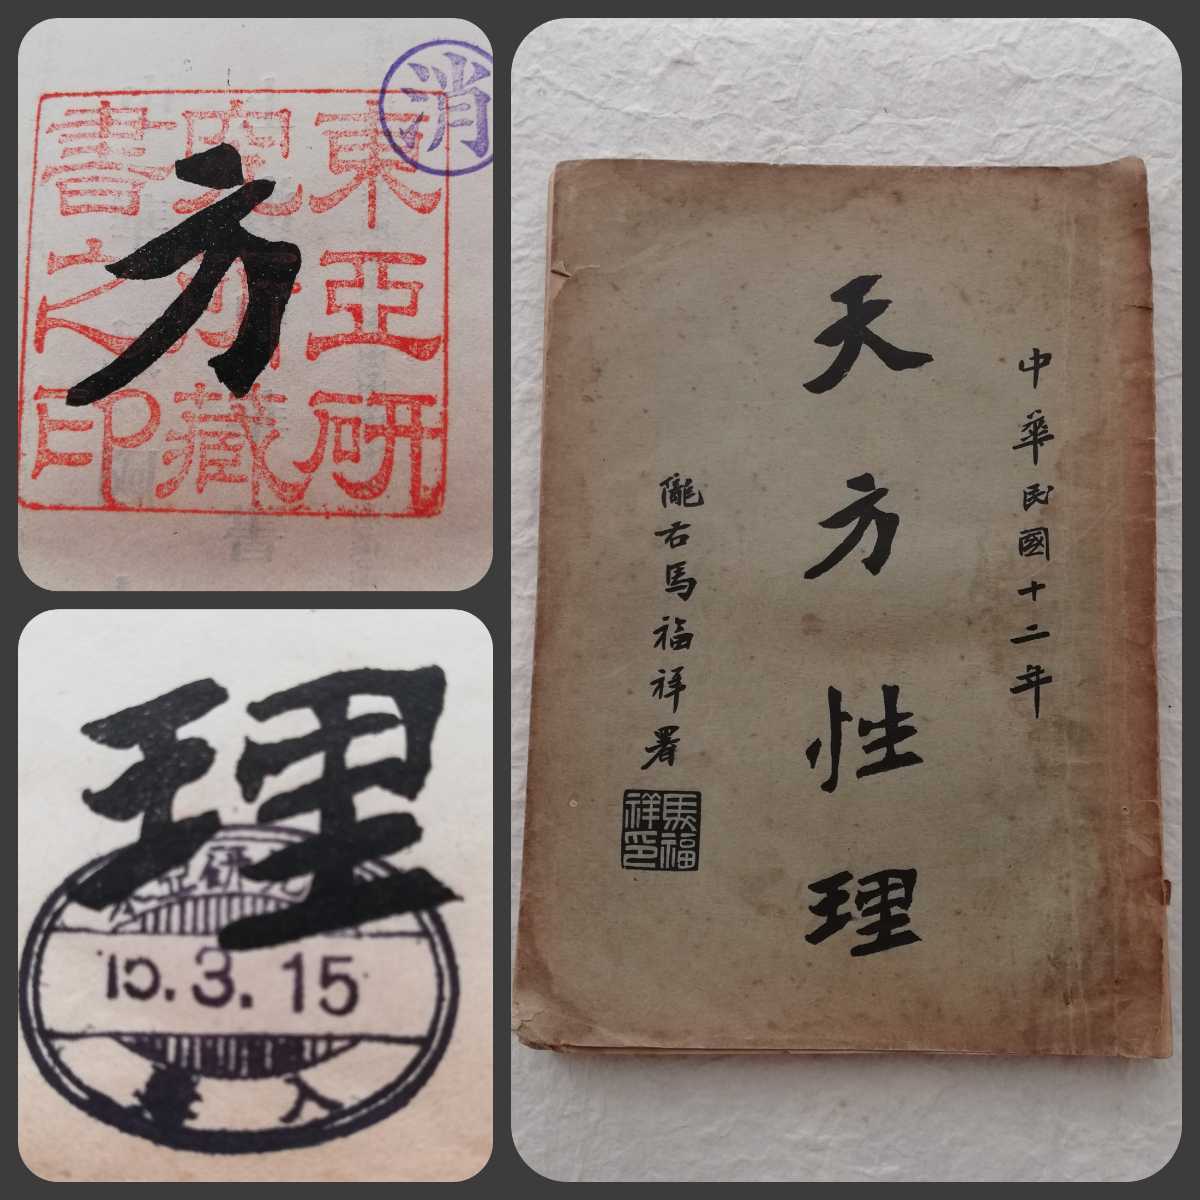 東亞研
究所藏
書之印
消
方
理
15.3.15
中華民國十二年
天方性理
隴右馬福祥署
馬福祥印